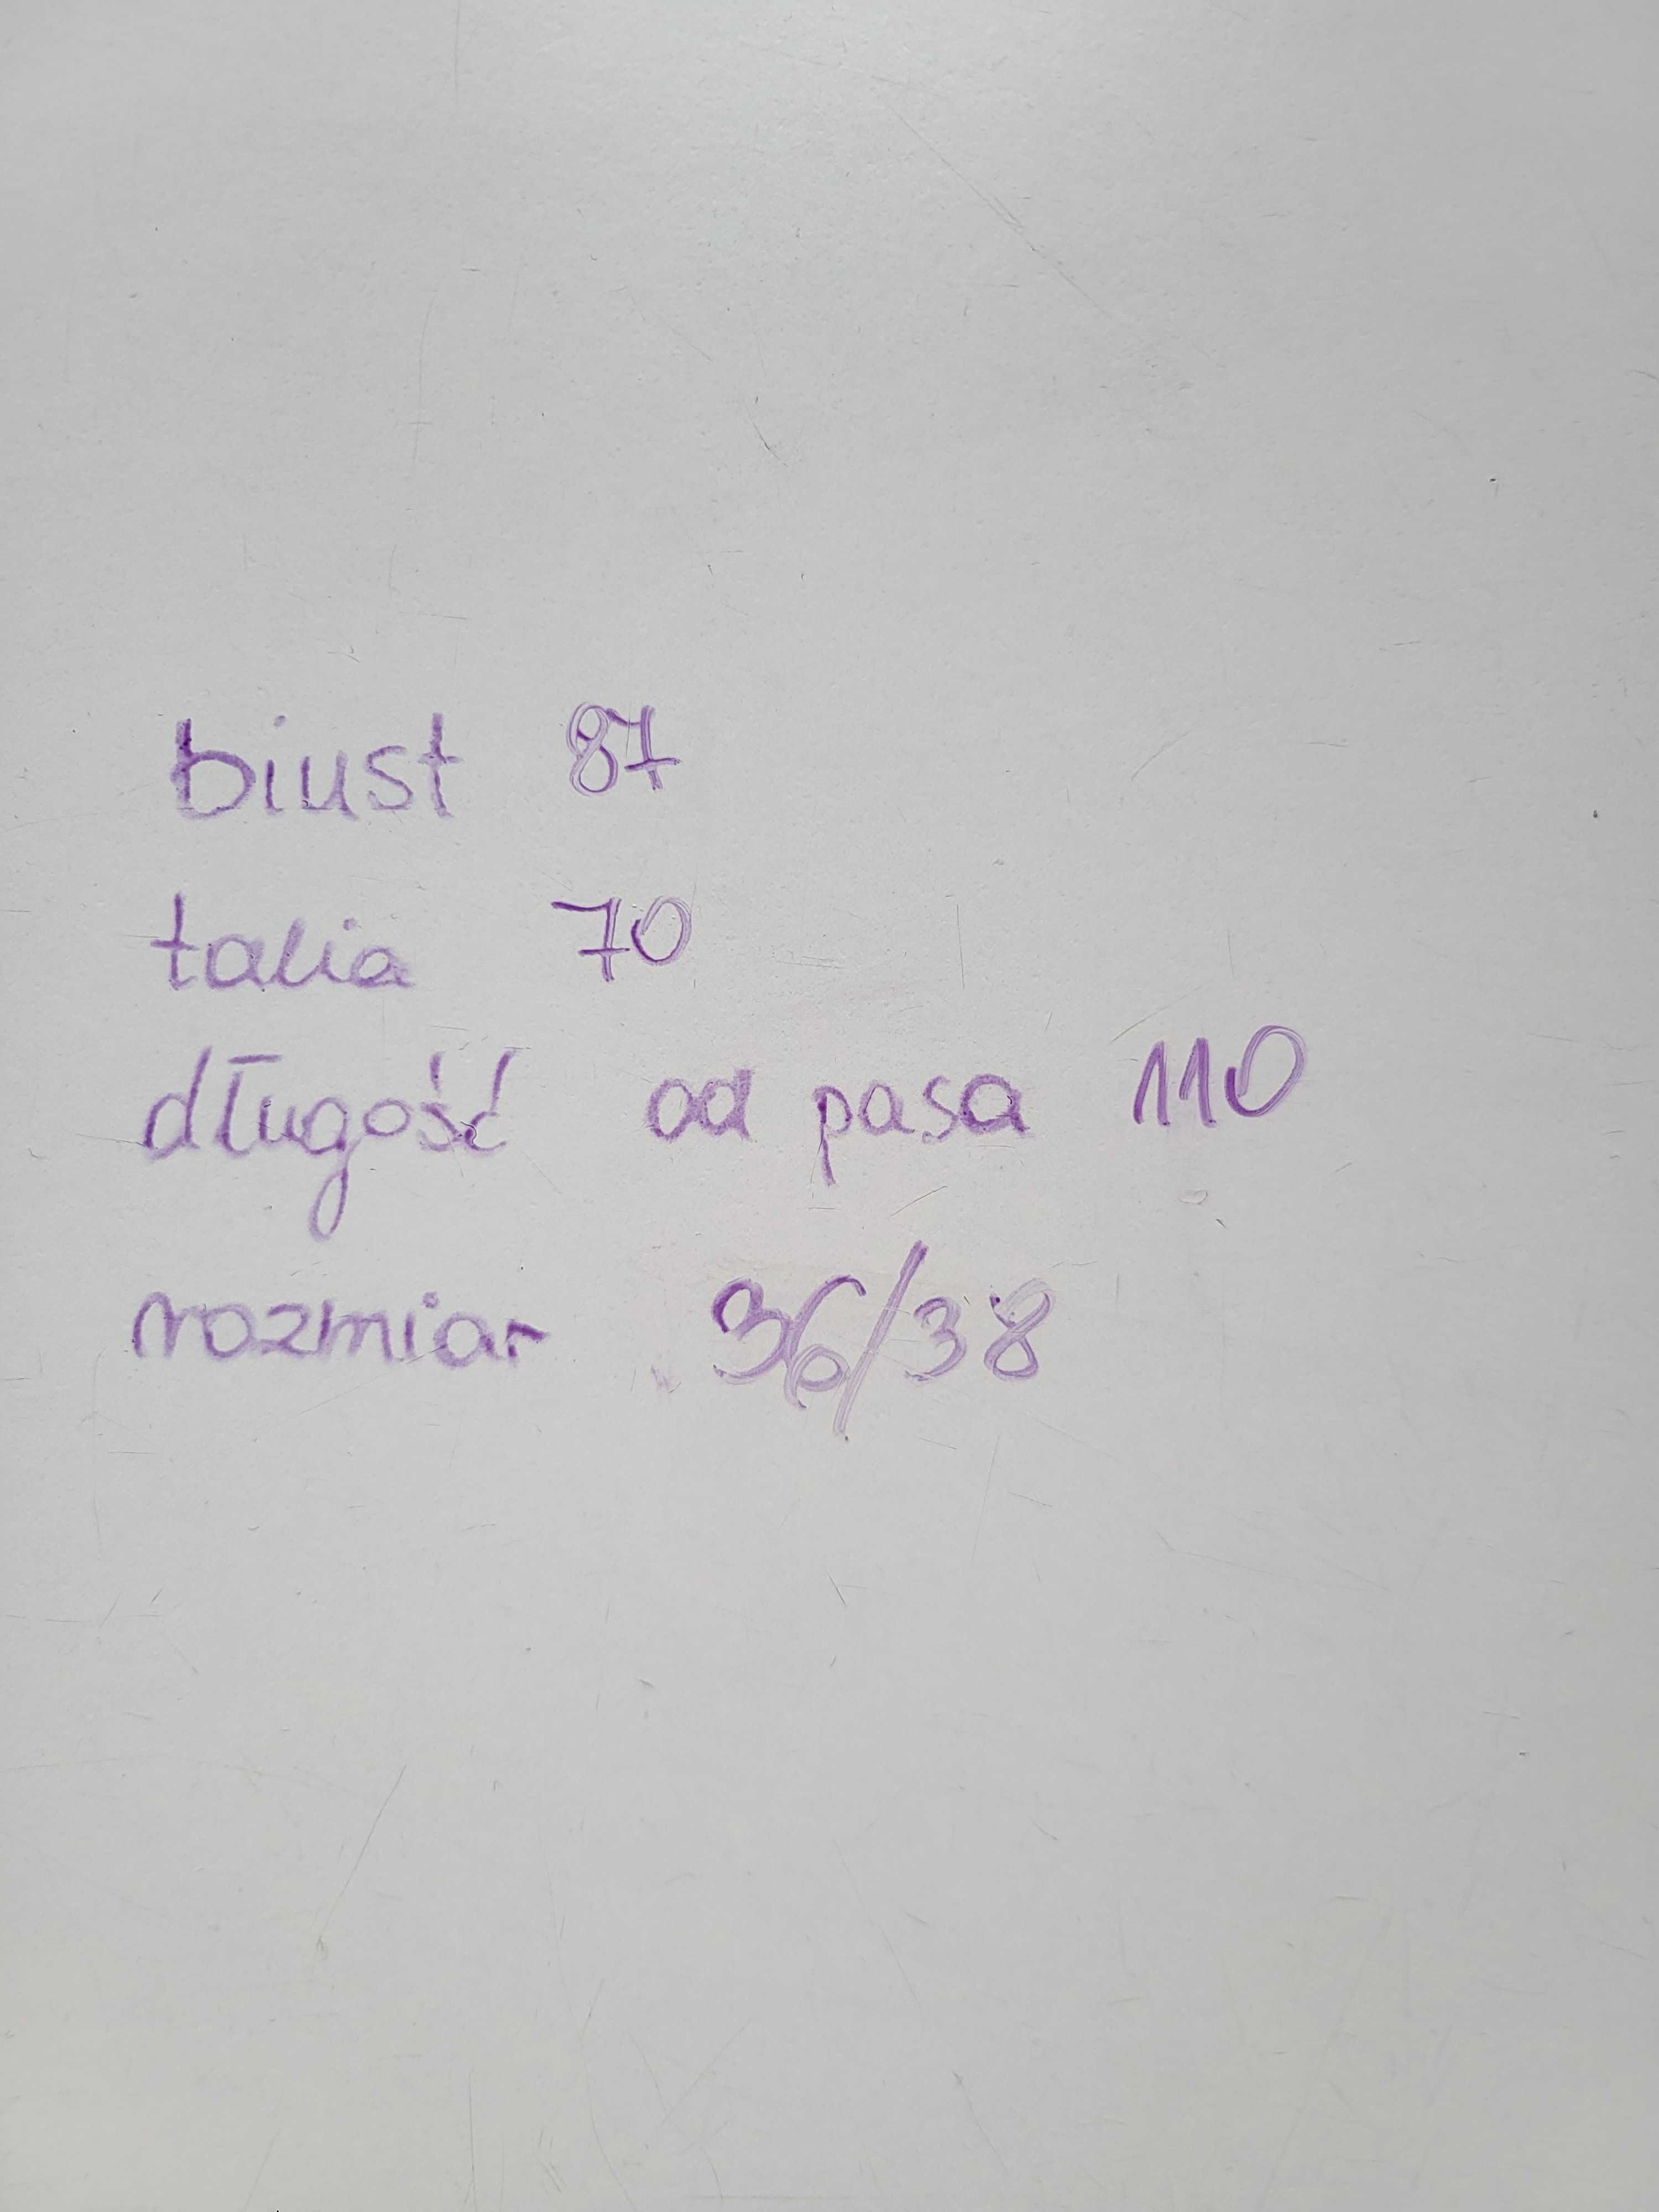 biust 87
talia 70
długość od pasa 110
rozmiar 36/38